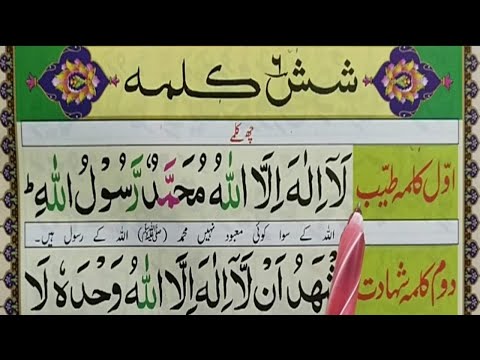 شش ۶ کلمہ
چھ کلمے
اوّل کلمہ طیّب لَآ اِلٰهَ اِلَّا اللهُ مُحَمَّدٌ رَّسُوْلُ اللهِ ؕ
اللہ کے سوا کوئی معبود نہیں محمد (ﷺ) اللہ کے رسول ہیں۔
دوم کلمہ شہادت شْهَدُ اَنْ لَّآ اِلٰهَ اِلَّا اللهُ وَحْدَهٗ لَا